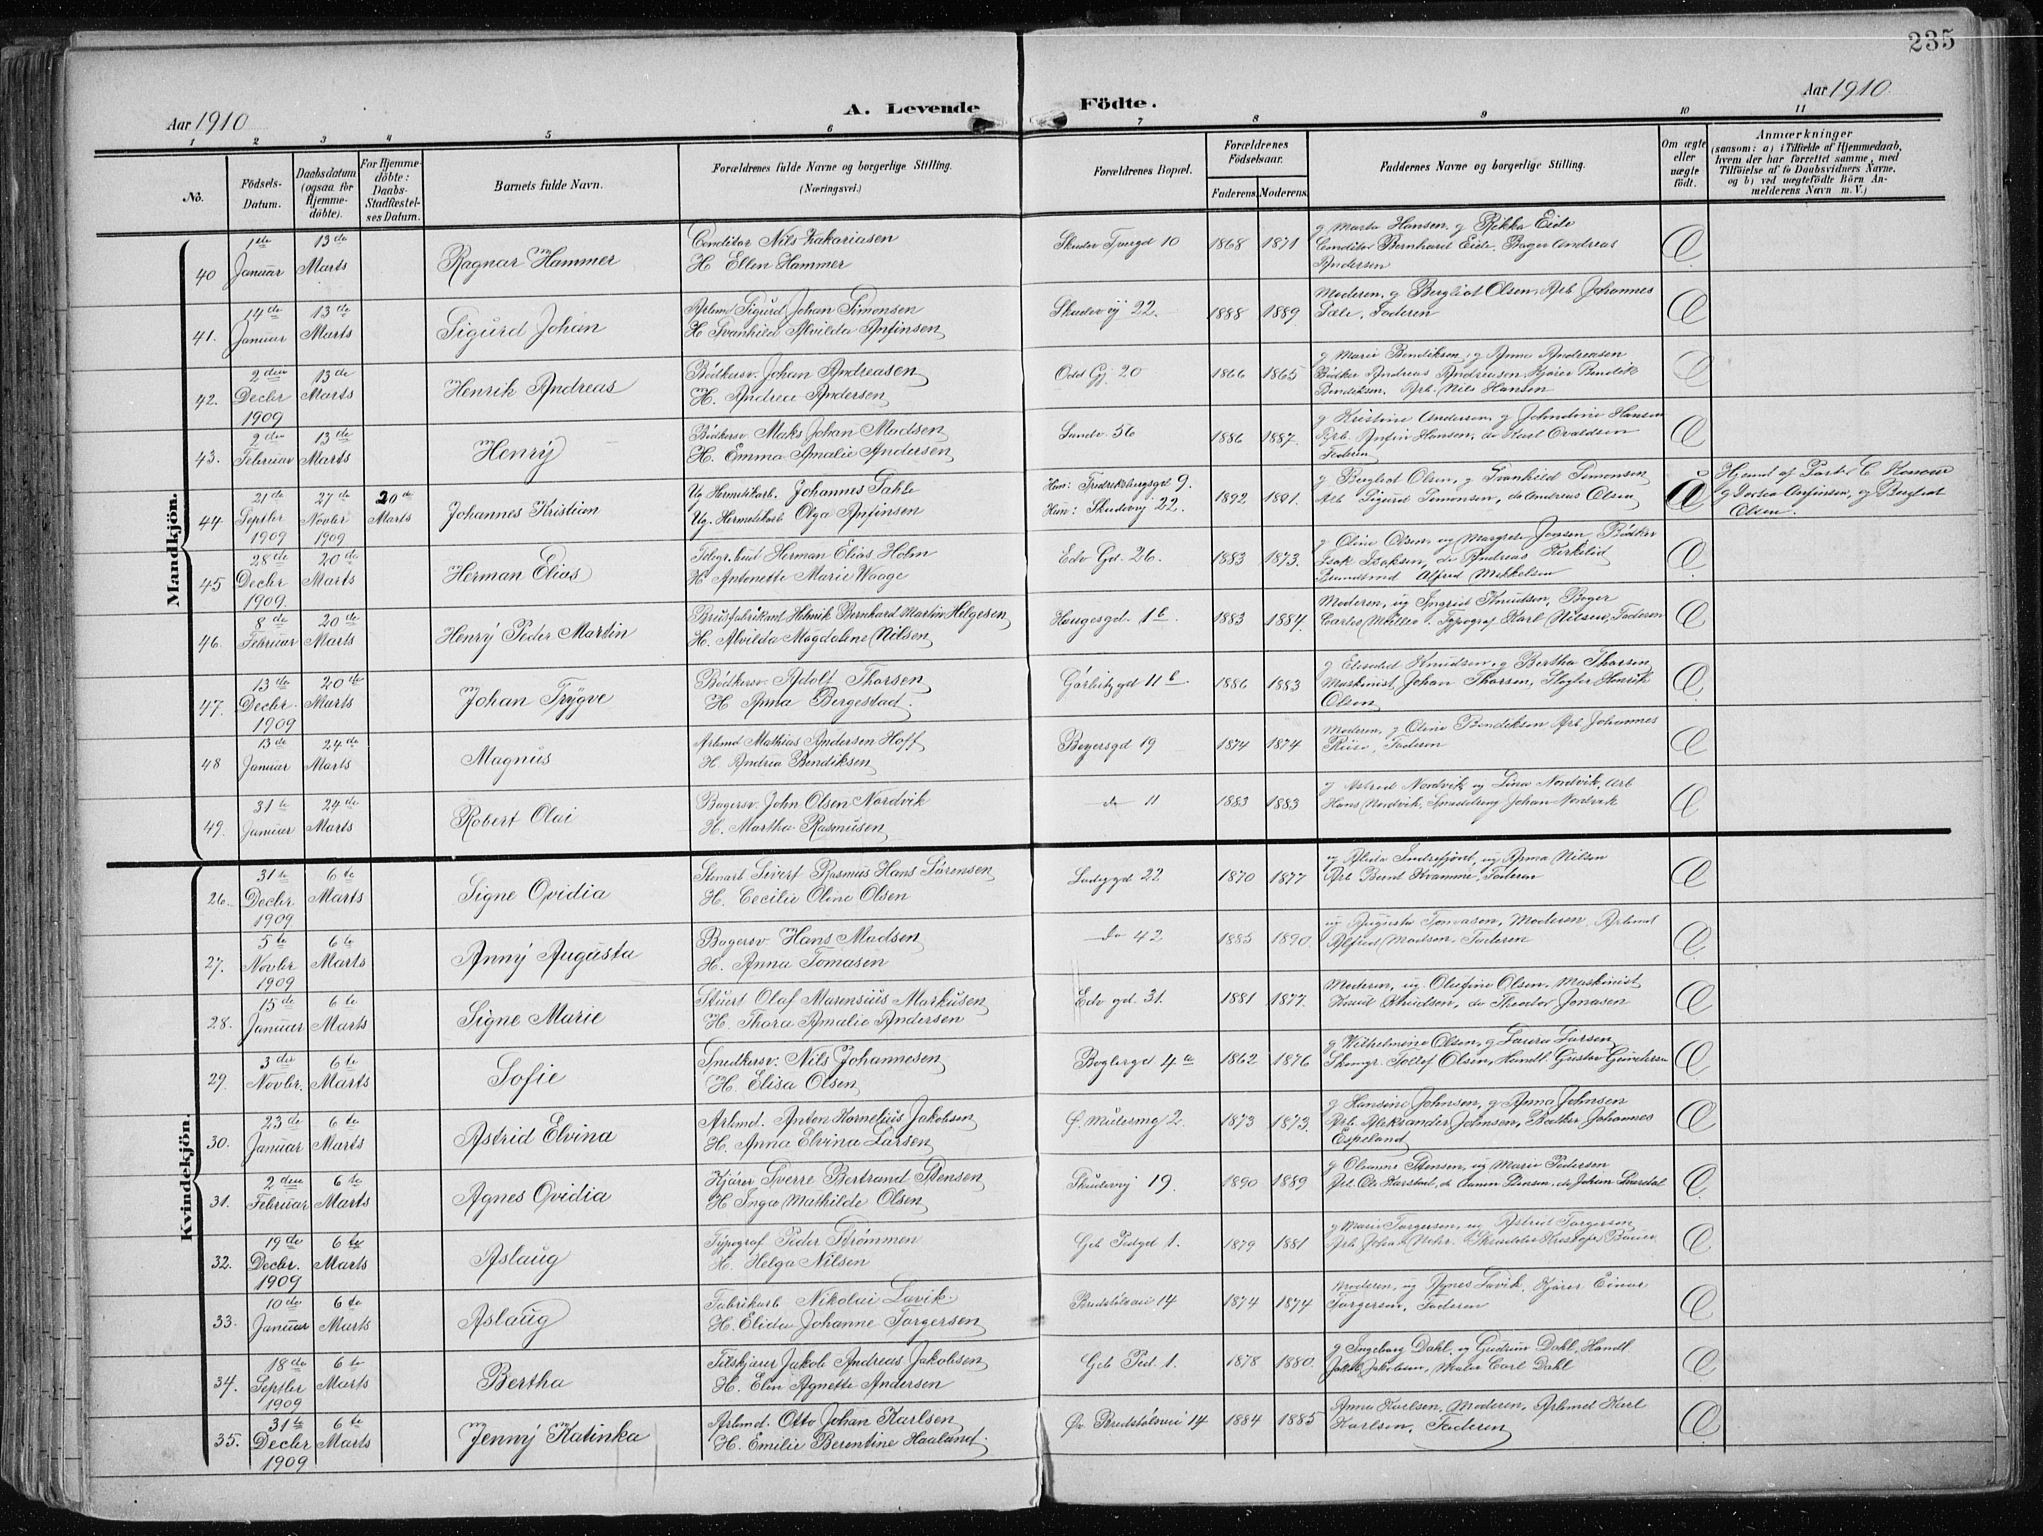 235
Aar 1910
A. Levende Födte.
Aar 1910
1 2 3 4 5 6 7 8 9 10 11
No.
Födsels-Datum.
Daabsdatum (ogsaa for Hjemmedöbte).
For Hjemmedöbte: Daabs-Stadfæstelses Datum.
Barnets fulde Navn.
Forældrenes fulde Navne og borgerlige Stilling. (Næringsvei.)
Forældrenes Bopæl.
Forældrenes Födselsaar.
Faderens. Moderens.
Faddernes Navne og borgerlige Stilling.
Om ægte eller uægte födt.
Anmærkninger
(saasom: a) i Tilfælde af Hjemmedaab, hvem der har forrettet samme, med Tilföielse af to Daabsvidners Navne, og b) ved uægtefödte Börn Anmelderens Navn m. V.)
Mandkjön.
40 1de Januar 13de Marts Ragnar Hammer
Conditor Nils Zakariasen
H. Ellen Hammer
10 1868 1871
g Marta Hansen, g Rikka Eide
Conditor Bernhard Eide, Bager Andreas
Andersen
41. 14de Januar 13de Marts Sigurd Johan
Arbm Sigurd Johan Simonsen
H. Svanhild Alvilda Anfinsen
Skudev vj 22. 1888 1889
Moderen, g Bergliot Olsen, Arb Johannes
Faderen
42. 2den Decbr 1909 13de Marts Henrik Andreas
Bødkersv. Johan Andreasen
H. Andrea Andersen
Odd Gj. 20 1866 1865
g Marie Bendiksen, g Anna Andreasen
Bødker Andreas Andreasen, Kjører Bendik
Bendiksen, Arb. Nils Hansen
43. 2den Februar 13de Marts Henrÿ
Bødkersv Maks Johan Madsen
H. Emma Amalie Andersen
Sundv 56 1886 1887
g Kristine Andersen, g Johndine Hansen
Arb. Anfin Hansen, do Karl Ovaldsen
Faderen
44 21de Septbr 1909 27de Novbr 1909 20de Marts Johannes Kristian
Ug Hermetikarb. Johannes Tahle
Ug. Hermetikarb Olga Anfinsen
Han: Fredriksbergsgd 9.
Hun: Skudevvj 22. 1892 1891.
g Bergliot Olsen, g Svanhild Simonsen
Arb Sigurd Simonsen, do Andreas Olsen
Hjemd af Pastor C.
g Anfinsen, og Bergliot
Olsen.
45 28de Decbr 1909. 20de Marts Herman Elias
Herman Elias Holm
H Antonette Marie Waage
Edv Gd. 26. 1883 1873.
g Oline Olsen, ug Margrete Jensen Bødker
Isak Isaksen, do Andreas Kirkelid
Alfred Mikkelsen
46. 8de Februar 20de Marts Henrÿ Peder Martin
Brusfabrikant Henrik Bernhard Martin Helgesen
H. Alvilda Magdalene Nilsen
Haugesgd. 1c. 1883 1884.
Moderen, ug Ingrid Knudsen, Bager
Typograf Karl Nilsen, Faderen
47. 13de Decbr. 1909 20de Marts Johan Trÿgve
Bødkersv. Adolf Thorsen
H Anna Bergestad.
11c. 1886 1883
g Eliesebed Knudsen, g Bertha Thorsen
Maskinist Johan Thorsen, Slagter Henrik
Olsen
48 13de Januar 24de Marts Magnus
Arbmd Mathias Andersen Hoff
H. Andrea Bendiksen
Beyersgd 19 1874 1874
Moderen, g Oline Bendiksen Arb. Johannes
Riise, Faderen
49. 31te Januar 24de Marts Robert Olai
Bagersv. John Olsen Nordvik
H. Martha Rasmusen
do 11 1883 1883
g Astrid Nordvik ug Lina Nordvik, Arb
Hans Nordvik, Johan Nordvik
Kvindekjön.
26. 31te Decbr 1909 6te Marts Signe Ovidia
Stenarb Sivert Rasmus Hans Sörensen
H. Cecilie Oline Olsen
22 1870 1877
ug Alvida Indrefjord, ug Anna Nilsen
Arb Bernt Kvamme, Faderen
27. 5te Novbr 1909 6te Marts Annÿ Augusta
Bagersv Hans Madsen
H. Anna Tomasen
do 42 1885 1890
ug Augusta Tomasen, Moderen. Arbmd
Alfred Madsen, Faderen
28. 15de Januar 6te Marts Signe Marie
Stuert Olaf Marensius Markusen
H. Thora Amalie Andersen
Edv gd. 31. 1881 1877.
Moderen, ug Olufine Olsen, Maskinist
Knud Knudsen, do Theodor Jonasen
29. 3die Novbr. 6te Marts Sofie
Snedkersv. Nils Johannesen
H. Elisa Olsen
Boglergd 4a 1862 1876
g Wilhelmine Olsen, g Laura Larsen
Tollef Olsen, Handl. Gustav Gundersen
30. 23de Januar 6te Marts Astrid Elvina
Arbmd. Anton Kornelius Jakobsen
H. Anna Elvina Larsen
Ø. 2. 1873 1873.
g Hansine Johnsen, g Anna Johnsen
Arb. Aleksander Johnsen, Bødker Johannes
Espeland
31. 2den Februar 6te Marts Agnes Ovidia
Kjører Sverre Bertrand Stensen
H Inga Mathilde Olsen
Skudevvj 19. 1890 1889
g Oleanne Stensen, ug Marie Pedersen
Arb. Ole Harstad, do Stensen, do Johan
32. 19de Decbr. 1909 6te Marts Aslaug
Typograf Peder Strømmen
H. Helga Nilsen
Geb Pedgd 1. 1879 1881
g Marie Torgersen, ug Astrid Torgersen
Arb. Johan Skrædder Kristofer
33. 10de Januar 6te Marts Aslaug
Fabrikarb Nikolai Lavik.
H. Elida Johanne Torgersen
Bredstølsvei 14 1874 1874
Moderen, ug Agnes Lavik, Kjører Einar
Torgersen, Faderen
34. 18de Septbr 1909 6te Marts Bertha
Jakob Andreas Jakobsen
H. Elen Agnette Andersen
Geb Ped. 1. 1878 1880.
g Ingeborg Dahl, ug Gudrun Dahl, Handl
Jakob Jakobsen, Maler Carl Dahl
35. 31te Decbr 1909 6te Marts Jennÿ Katinka
Arbmd. Otto Johan Karlsen
H. Emilie Berentine Haaland.
Ø. Bredstølsvei 14 1884 1885
Anna Karlsen, Moderen, Arbmd Karl
Karlsen, Faderen